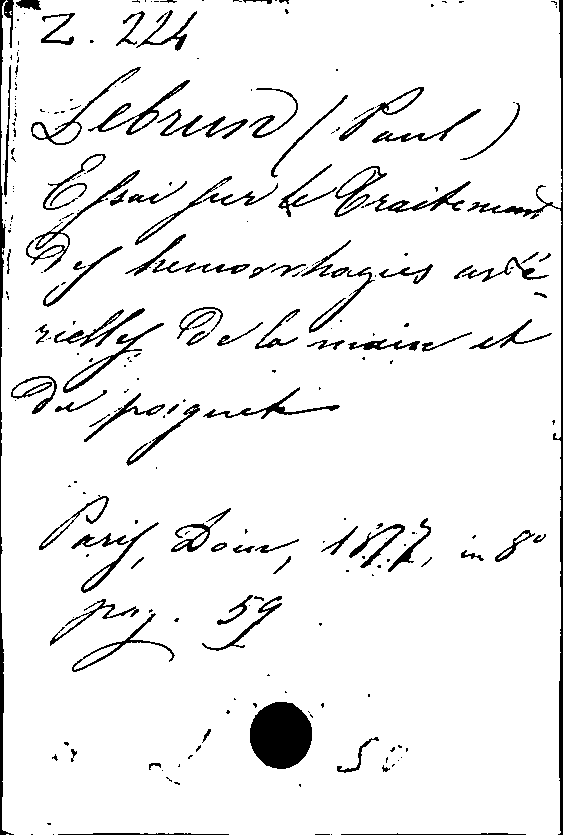 Z. 224
Lebrun (Paul)
Essai sur le Traitement
des hemorrhagies arté-
rielles de la main et
du poignet
Paris, Doin, 1877, in 8º
pag. 59
50